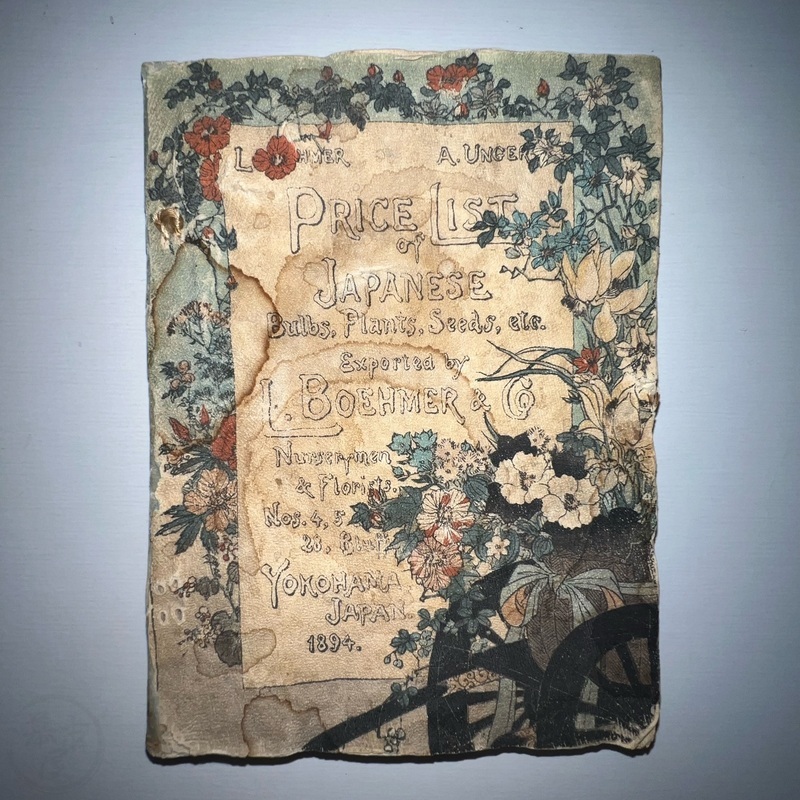 L. BOEHMER A. UNGER
PRICE LIST
of
JAPANESE
Bulbs, Plants, Seeds, etc.
Exported by
L. BOEHMER & Co
Nurserymen
& Florists.
Nos. 4, 5
28, Bluff
YOKOHAMA
JAPAN.
1894.